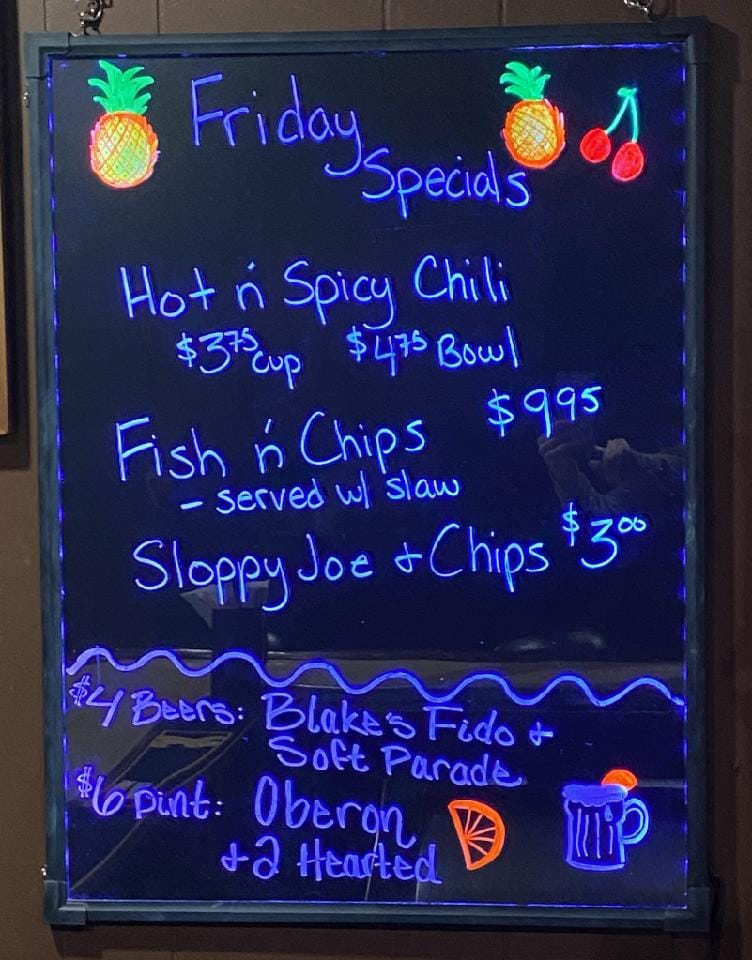 Friday
Specials
Hot n' Spicy Chili
$3.75 cup $4.75 Bowl
Fish n' Chips $9.95
- served w/ slaw
Sloppy Joe + Chips $3.00
$4 Beers: Blake's Fido +
Soft Parade
$6 pint: Oberon
+ 2 Hearted